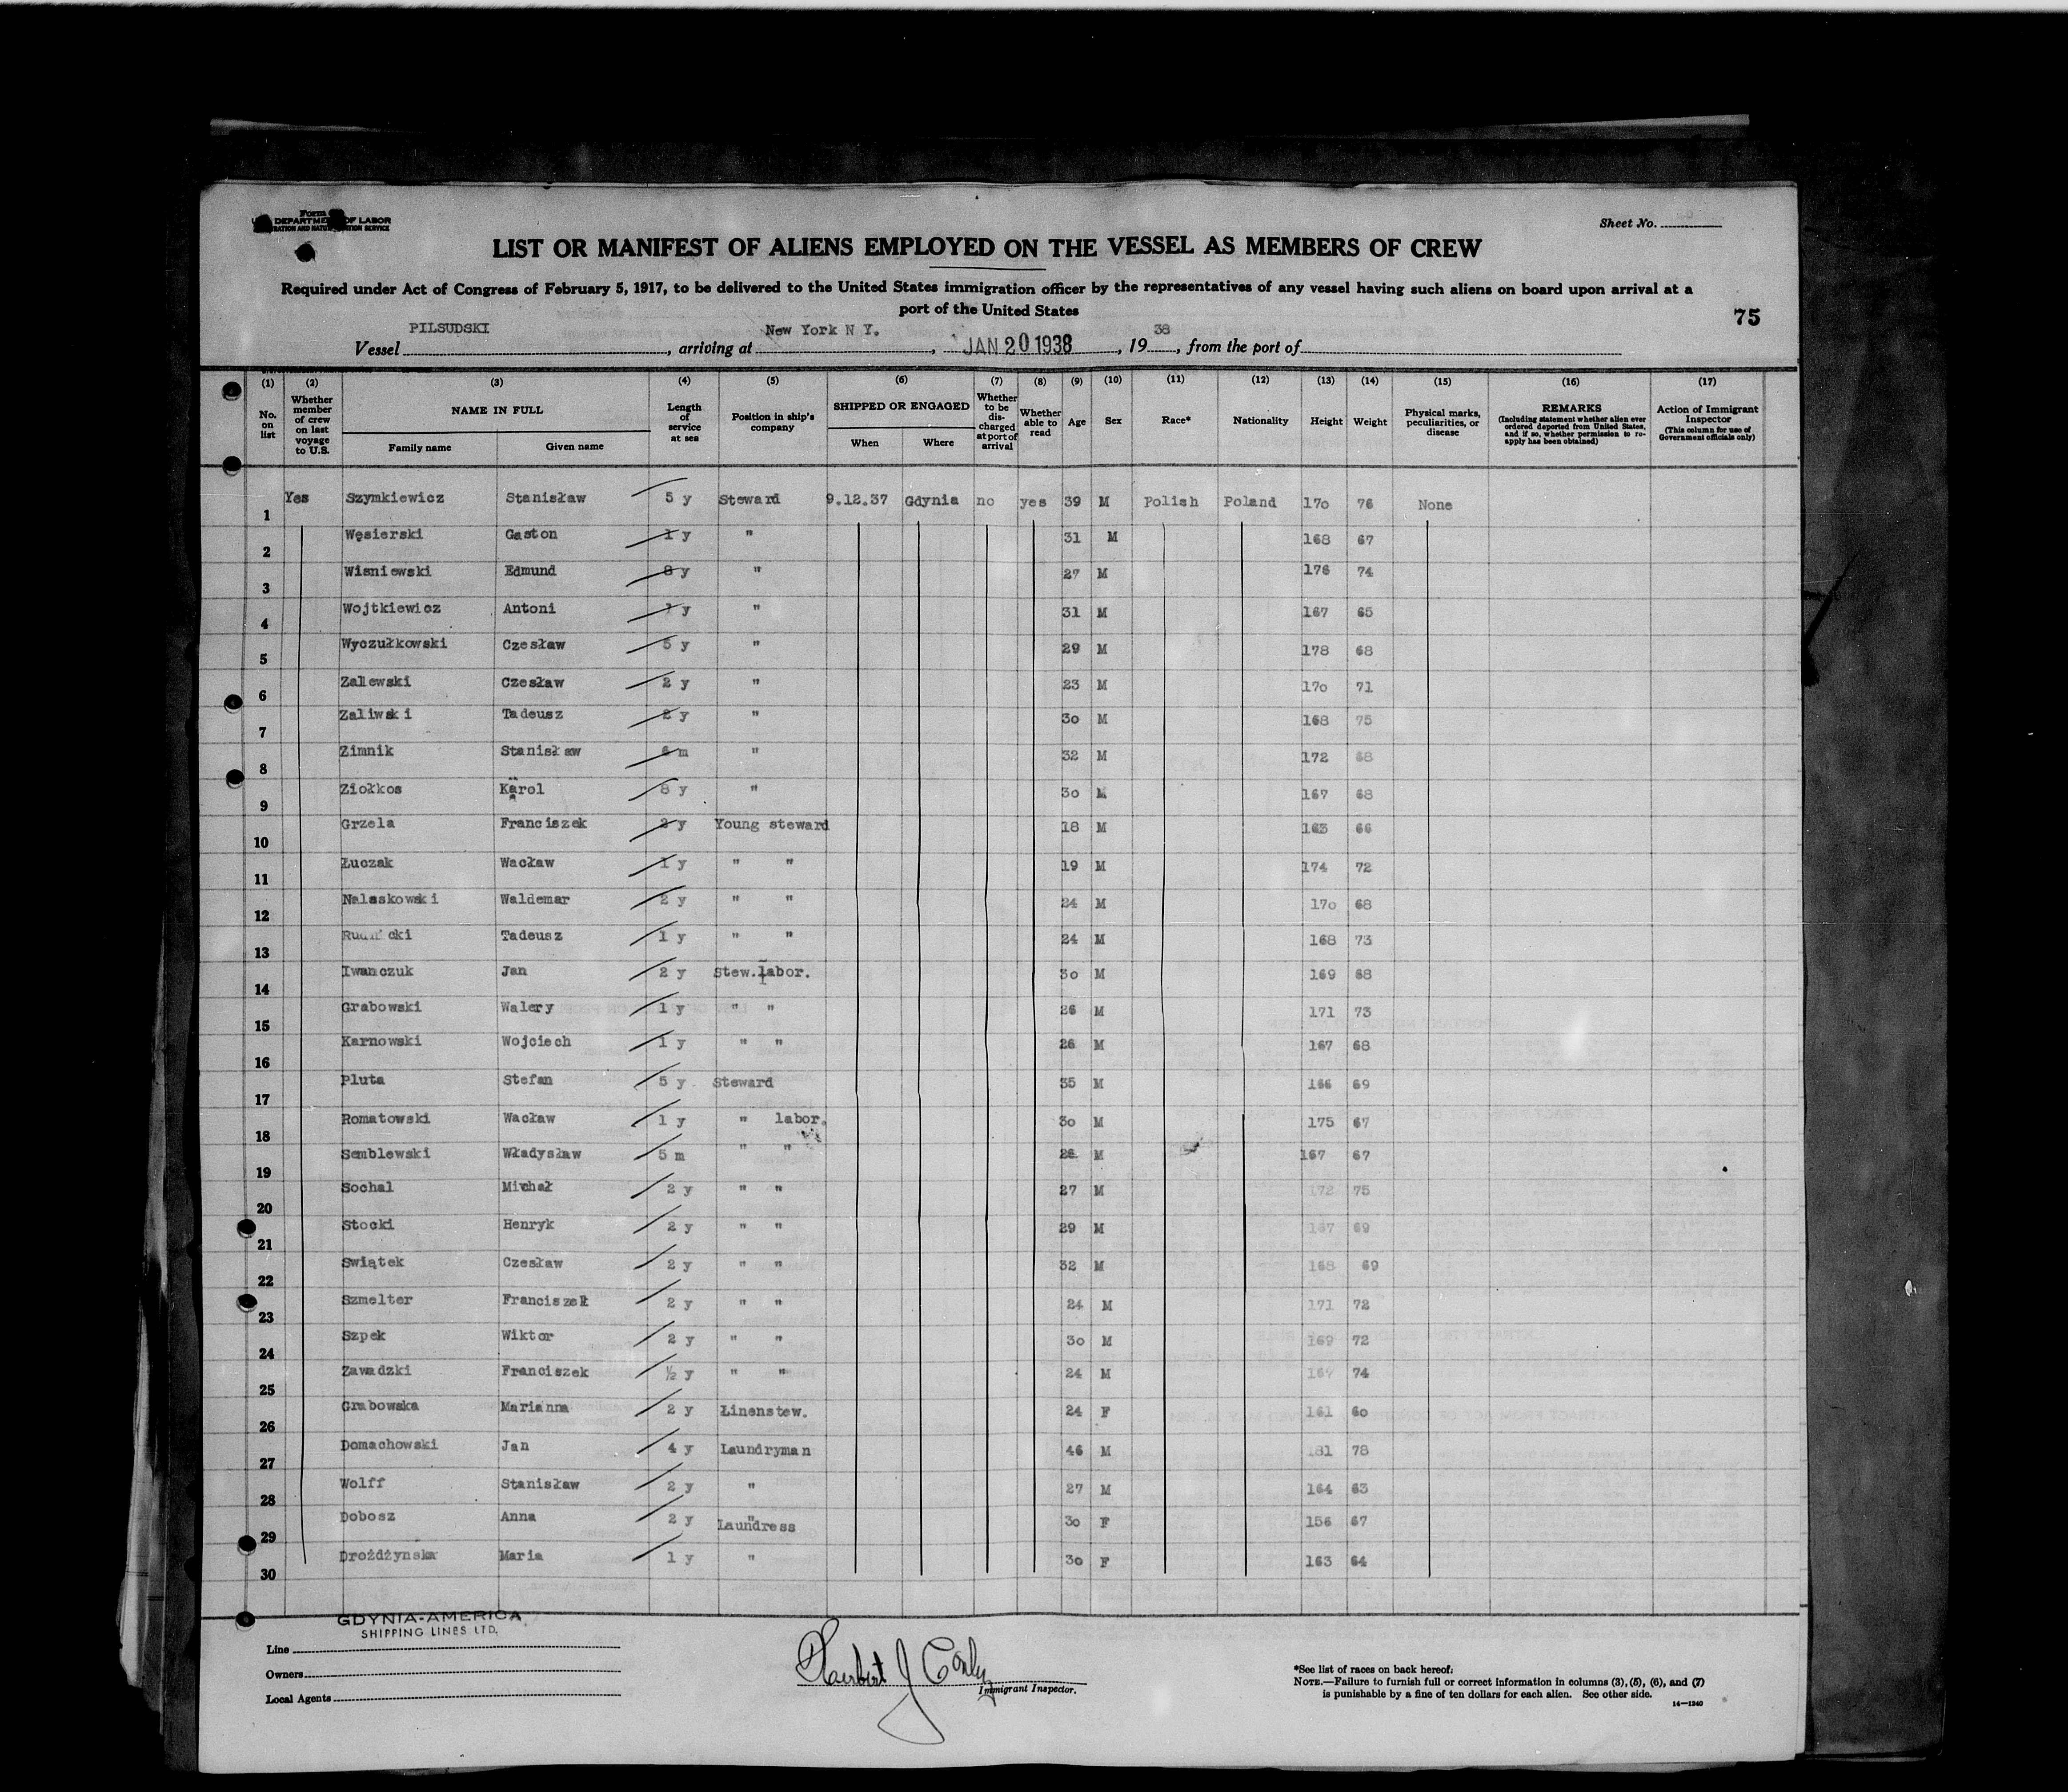 Form
U. S. DEPARTMENT OF LABOR
IMMIGRATION AND NATURALIZATION SERVICE
Sheet No.
LIST OR MANIFEST OF ALIENS EMPLOYED ON THE VESSEL AS MEMBERS OF CREW
Required under Act of Congress of February 5, 1917, to be delivered to the United States immigration officer by the representatives of any vessel having such aliens on board upon arrival at a
port of the United States
75
Vessel PILSUDSKI, arriving at New York N Y., JAN 20 1938, 1938, from the port of
(1) (2) (3) (4) (5) (6) (7) (8) (9) (10) (11) (12) (13) (14) (15) (16) (17)
No. on list
Whether member of crew on last voyage to U.S.
NAME IN FULL
Family name Given name
Length of service at sea
Position in ship's company
SHIPPED OR ENGAGED
When Where
Whether to be discharged at port of arrival
Whether able to read
Age Sex Race* Nationality Height Weight
Physical marks, peculiarities, or disease
REMARKS
(Including statement whether alien ever ordered deported from United States, and if so, whether permission to reapply has been obtained)
Action of Immigrant Inspector
(This column for use of Government officials only)
1 Yes Szymkiewicz Stanisław 5 y Steward 9.12.37 Gdynia no yes 39 M Polish Poland 170 76 None
2 Węsierski Gaston 1 y " 31 M 168 67
3 Wisniewski Edmund 8 y " 27 M 176 74
4 Wojtkiewicz Antoni y " 31 M 167 65
5 Wyczułkowski Czesław 5 y " 29 M 178 68
6 Zalewski Czesław 2 y " 23 M 170 71
7 Zaliwski Tadeusz 2 y " 30 M 168 75
8 Zimnik Stanisław 6 m " 32 M 172 68
9 Ziołkos Karol 8 y " 30 M 167 68
10 Grzela Franciszek 2 y Young steward 18 M 163 66
11 Łuczak Wacław 1 y " " 19 M 174 72
12 Nalaskowski Waldemar 2 y " " 24 M 170 68
13 Rudnicki Tadeusz 1 y " " 24 M 168 73
14 Iwanczuk Jan 2 y Stew.labor. 30 M 169 68
15 Grabowski Walery 1 y " " 26 M 171 73
16 Karnowski Wojciech 1 y " " 26 M 167 68
17 Pluta Stefan 5 y Steward 35 M 166 69
18 Romatowski Wacław 1 y " labor. 30 M 175 67
19 Semblewski Władysław 5 m " " 26 M 167 67
20 Sochal Michał 2 y " " 27 M 172 75
21 Stocki Henryk 2 y " " 29 M 167 69
22 Swiątek Czesław 2 y " " 32 M 168 69
23 Szmelter Franciszek 2 y " " 24 M 171 72
24 Szpek Wiktor 2 y " " 30 M 169 72
25 Zawadzki Franciszek ½ y " " 24 M 74
26 Grabowska Marianna 2 y Linenstew. 24 F 161 60
27 Domachowski Jan 4 y Laundryman 46 M 181 78
28 Wolff Stanisław 2 y " 27 M 164 63
29 Dobosz Anna 2 y Laundress 30 F 156 67
30 Drożdżynska Maria 1 y " 30 F 163 64
GDYNIA-AMERICA
SHIPPING LINES LTD.
Line
Owners
Local Agents
Herbert J Conly
Immigrant Inspector.
*See list of races on back hereof.
NOTE.—Failure to furnish full or correct information in columns (3), (5), (6), and (7)
is punishable by a fine of ten dollars for each alien. See other side.
14—1240